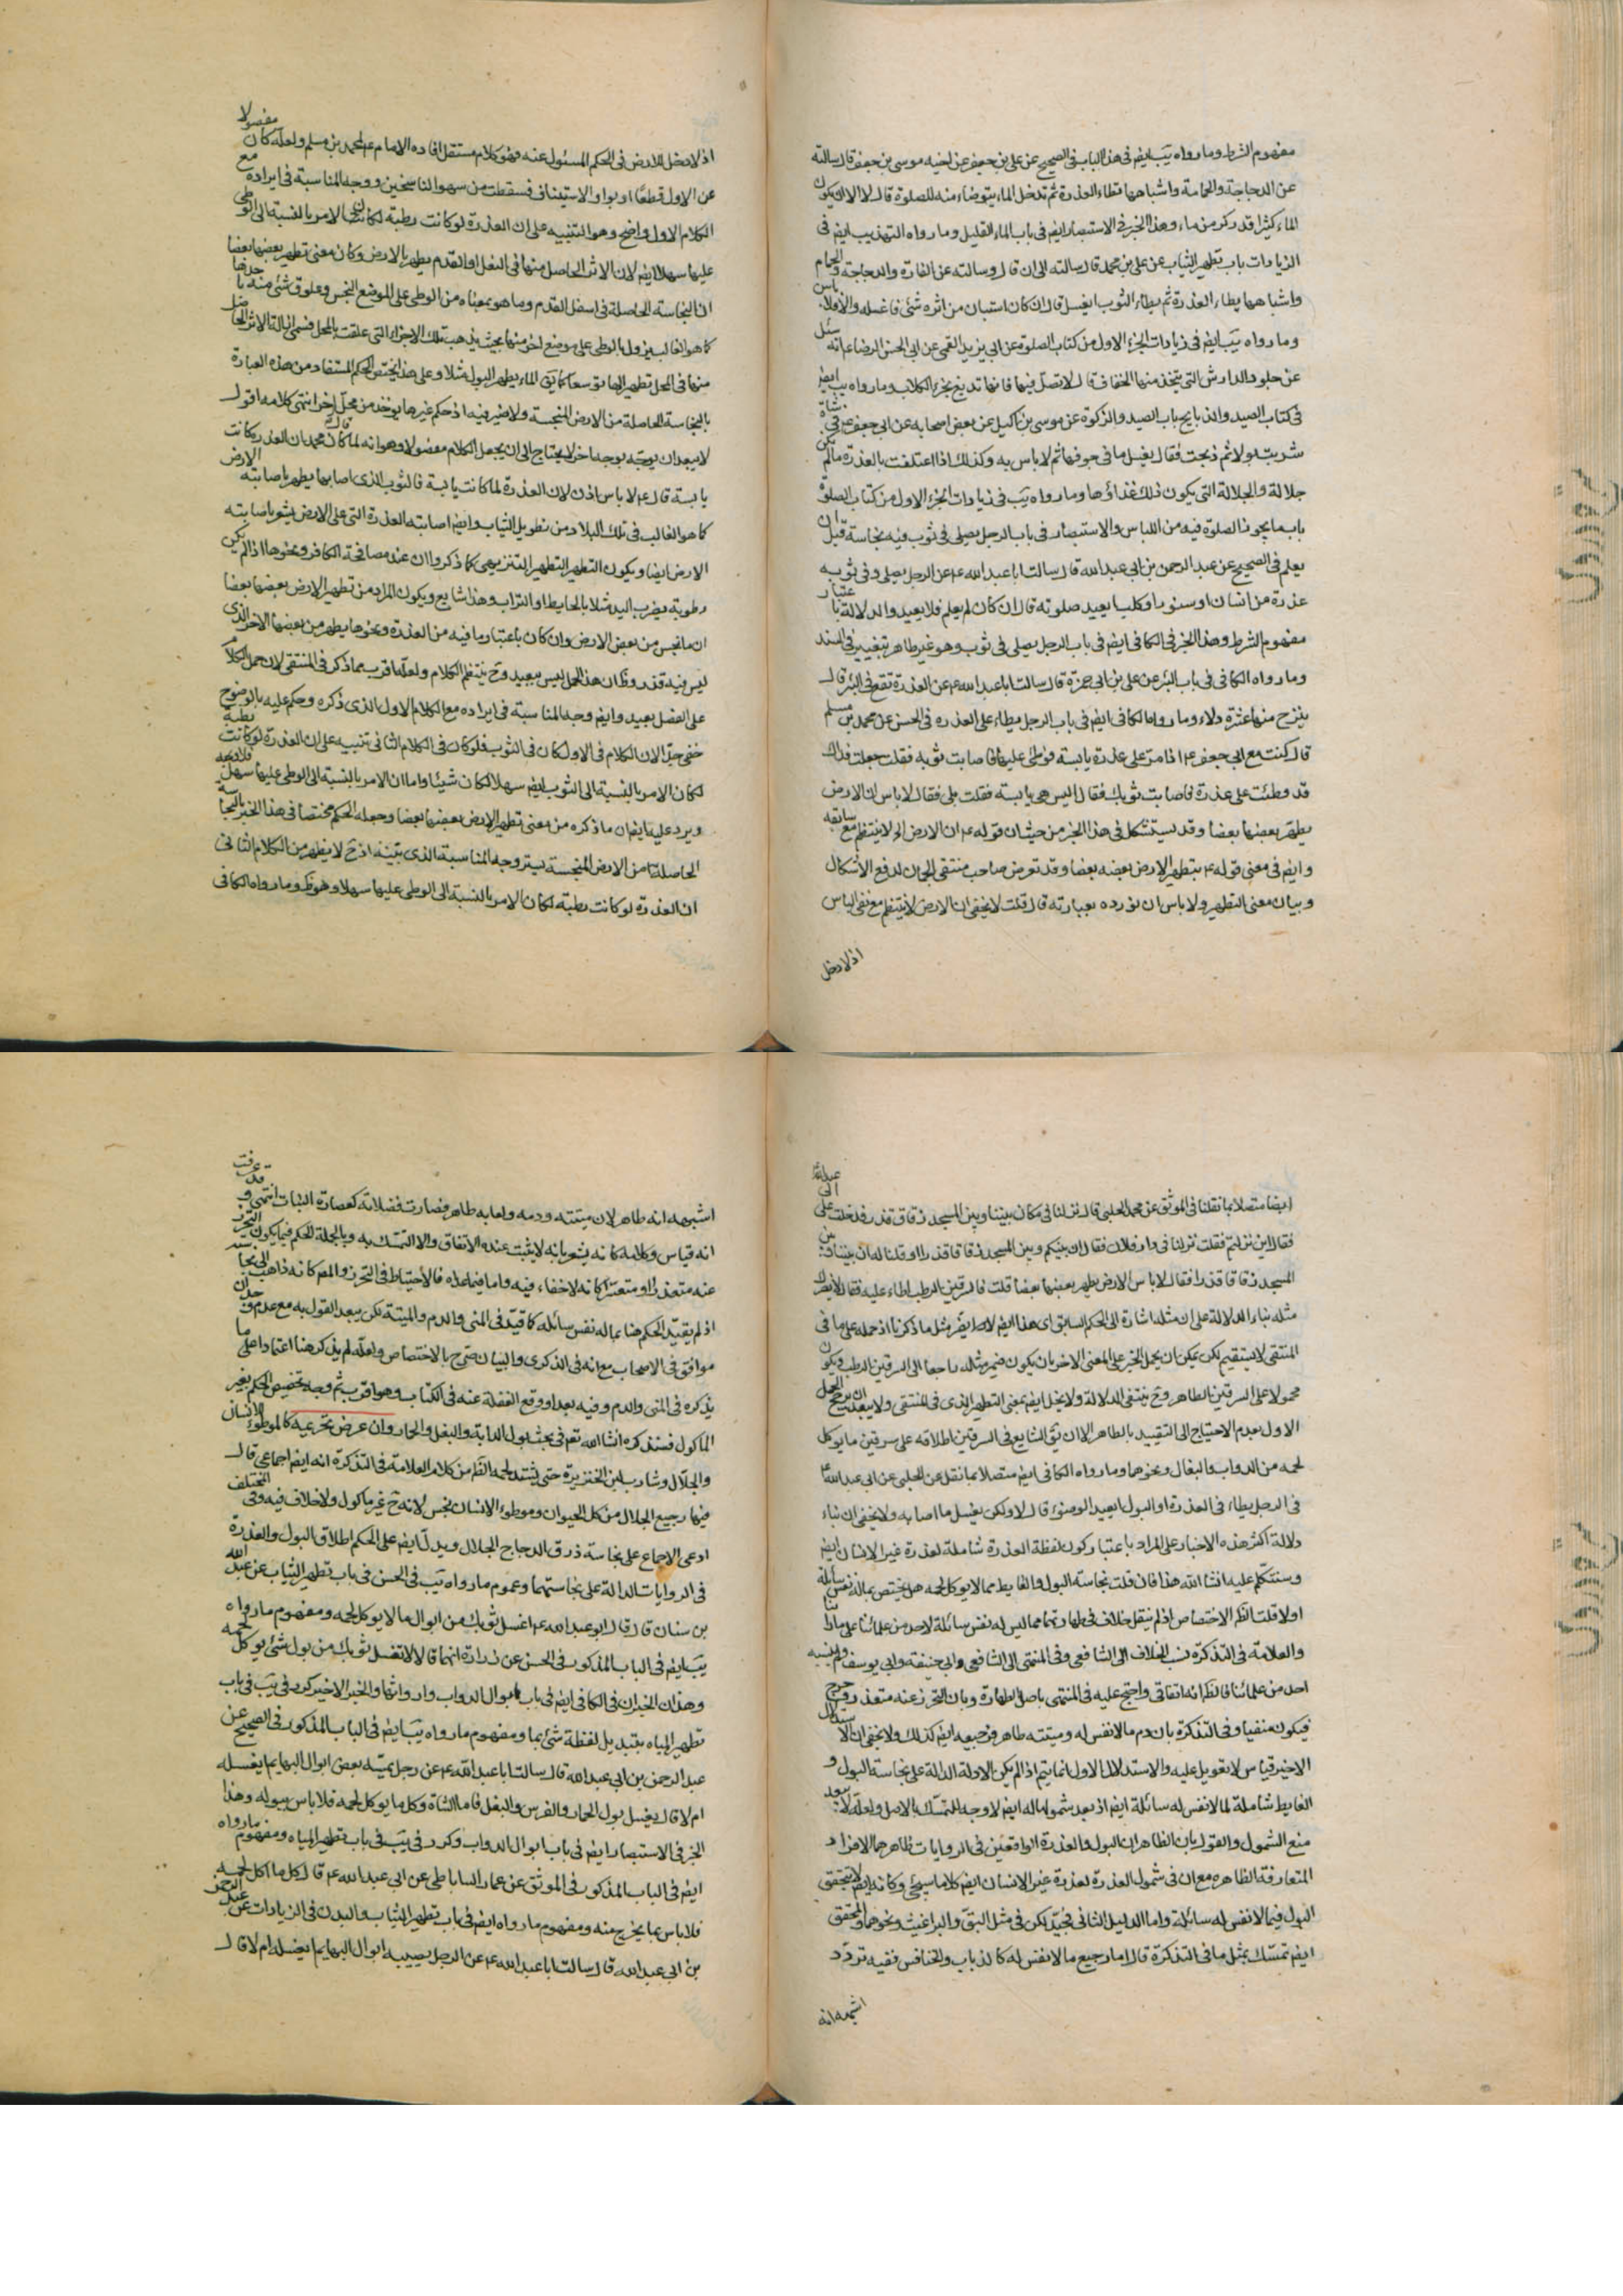 مفهوم الشرط وما رواه يب ايضا في هذا الباب في الصحيح عن علي بن جعفر عن اخيه موسى بن جعفر قال سالته
عن الدجاجة والحمامة واشباهها تطاء العذرة ثم تدخل الماء يتوضاء منه للصلوة قال لا الا ان يكون
الماء كثيرا قدر كر من ماء وهذا الخبر في الاستبصار ايضا في باب الماء القليل وما رواه التهذيب ايضا في
الزيادات باب تطهير الثياب عن علي بن محمد قال سالته الى ان قال وسالته عن الفارة والدجاجة والحمام
واشباهها يطاء العذرة ثم يطاء الثوب ايغسل قال ان كان استبان من اثره شئ فاغسله والا فلا باس
وما رواه يب ايضا في زيادات الجزء الاول من كتاب الصلوة عن ابي يزيد القمي عن ابي الحسن الرضا ع انه سئل
عن جلود الدارش التي يتخذ منها الخفاف قال لا تصل فيها فانها تدبغ بخرء الكلاب وما رواه يب ايضا
في كتاب الصيد والذبايح باب الصيد والذكوة عن موسى بن اكيل عن بعض اصحابه عن ابي جعفر ع في شاة
شربت بولا ثم ذبحت فقال يغسل ما في جوفها ثم لا باس به وكذلك اذا اعتلفت بالعذرة ما لم تكن
جلالة والجلالة التي يكون ذلك غذاؤها وما رواه يب في زيادات الجزء الاول من كتاب الصلوة
باب ما يجوز الصلوة فيه من اللباس والاستبصار في باب الرجل يصلي في ثوب فيه نجاسة قبل ان
يعلم في الصحيح عن عبد الرحمن بن ابي عبد الله قال سالت ابا عبد الله ع عن الرجل يصلي وفي ثوبه
عذرة من انسان او سنور او كلب ايعيد صلوته قال ان كان لم يعلم فلا يعيد والدلالة باعتبار
مفهوم الشرط وهذا الخبر في الكافي ايضا في باب الرجل يصلي في ثوب وهو غير طاهر بتغيير في السند
وما رواه الكافي في باب البئر عن علي بن ابي حمزة قال سالت ابا عبد الله ع عن العذرة تقع في البئر قال
ينزح منها عشرة دلاء وما رواه الكافي ايضا في باب الرجل يطاء على العذرة في الحسن عن محمد بن مسلم
قال كنت مع ابي جعفر ع اذا مر على عذرة يابسة فوطئ عليها فاصابت ثوبه فقلت جعلت فداك
قد وطئت على عذرة فاصابت ثوبك فقال اليس هي يابسة فقلت بلى فقال لا باس ان الارض
يطهر بعضها بعضا وقد يستشكل في هذا الخبر من حيث ان قوله ع ان الارض الخ لا ينتظم مع سابقه
وايضا في معنى قوله ع بتطهير الارض بعضه بعضا وقد تعرض صاحب منتقى الجمان لدفع الاشكال
وبيان معنى التطهير ولا باس ان نورده بعبارته قال قلت لا يخفى ان الارض لا ينتظم مع نفي الباس
اذ لا دخل
اذ لا دخل للارض في الحكم المسئول عنه فهو كلام مستقل افاده الامام ع لمحمد بن مسلم ولعله كان مفصولا
عن الاول قطعا او بواو الاستيناف فسقطت من سهو الناسخين ووجه المناسبة في ايراده مع
الكلام الاول واضح وهو التنبيه على ان العذرة لو كانت رطبة لكان الامر بالنسبة الى الوطي
عليها سهلا ايضا لان الاثر الحاصل منها في النعل او القدم يطهر بالارض وكان معنى تطهير بعضها بعضا
ان النجاسة الحاصلة في اسفل القدم وما هو بمعناه من الوطي على الموضع النجس وعلوق شئ منه باحدها
كما هو الغالب يزول بالوطي على موضع اخر منها بحيث يذهب تلك الاجزاء التي علقت بالمحل فسمى ازالة الاثر الحاصل
منها في المحل تطهيرا لها توسعا كما يق الماء يطهر البول مثلا وعلى هذا يختص الحكم المستفاد من هذه العبارة
بالنجاسة الحاصلة من الارض المنجسة ولا ضير فيه اذ حكم غيرها يوخذ من محل اخر انتهى كلامه اقول
لا يبعد ان يوجه بوجه اخر لا يحتاج الى ان يجعل الكلام مفصولا وهو انه لما كان قال محمد ان العذرة كانت
يابسة قال ع لا باس اذن لان العذرة لما كانت يابسة فالثوب الذي اصابها يطهر باصابته الارض
كما هو الغالب في تلك البلاد من تطويل الثياب وايضا اصابته العذرة التي على الارض يشعر باصابته
الارض ايضا ويكون التطهير التطهير التنزيهي كما ذكروا ان عند مصافحة الكافر ونحوها اذا لم يكن
رطوبة يضرب اليد مثلا بالحايط او التراب وهذا شايع ويكون المراد من تطهير الارض بعضها بعضا
ان ما نجس من بعض الارض وان كان باعتبار ما فيه من العذرة ونحوها يطهر من بعضها الاخر الذي
ليس فيه قذر وظ ان هذا الحمل ليس ببعيد وح ينتظم الكلام ولعله اقرب مما ذكر في المنتقى لان حمل الكلام
على الفصل بعيد وايضا وجه المناسبة في ايراده مع الكلام الاول الذي ذكره وحكم عليه بالوضوح
خفي جدا لان الكلام في الاول كان في الثوب فلو كان في الكلام الثاني تنبيه على ان العذرة لو كانت رطبة
لكان الامر بالنسبة الى الثوب ايضا سهلا لكان شيئا واما ان الامر بالنسبة الى الوطي عليها سهل فلا وجه له
ويرد عليه ايضا ان ما ذكره من معنى تطهير الارض بعضها بعضا وجعله الحكم مختصا في هذا الخبر بالنجاسة
الحاصلة من الارض المنجسة يستر وجه المناسبة الذي بينه اذ ح لا يظهر من الكلام الثاني
ان العذرة لو كانت رطبة لكان الامر بالنسبة الى الوطي عليها سهلا وهو ظ وما رواه الكافي
ايضا متصلا بما نقلنا في الموثق عن محمد الحلبي قال نزلنا في مكان بيننا وبين المسجد زقاق قذر فدخلت على ابي عبد الله
فقال اين نزلتم فقلت نزلنا في دار فلان فقال ان بينكم وبين المسجد زقاقا قذرا او قلنا له ان بيننا وبين
المسجد زقاقا قذرا فقال لا باس الارض يطهر بعضها بعضا قلت فالسرقين الرطب اطاء عليه فقال لا يضرك
مثله بناء الدلالة على ان مثله اشارة الى الحكم السابق اي هذا ايضا لا يضر مثل ما ذكرنا اذ حمله على ما في
المنتقى لا يستقيم لكن يمكن ان يحمل الخبر على المعنى الاخر بان يكون ضمير مثله راجعا الى السرقين الرطب ويكون
محمولا على السرقين الطاهر وح ينتفي الدلالة ولا يخل ايضا بمعنى التطهير الذي في المنتقى ولا يبعد ان يرجح الحمل
الاول بعدم الاحتياج الى التقييد بالطاهر الا ان يق الشايع في السرقين اطلاقه على سرقين ما يوكل
لحمه من الدواب والبغال ونحوهما وما رواه الكافي ايضا متصلا بما نقل عن الحلبي عن ابي عبد الله ع
في الرجل يطاء في العذرة او البول ايعيد الوضوء قال لا ولكن يغسل ما اصابه ولا يخفى ان بناء
دلالة اكثر هذه الاخبار على المراد باعتبار كون لفظة العذرة شاملة لعذرة غير الانسان ايضا
وسنتكلم عليه انشا الله هذا فان قلت نجاسة البول والغايط مما لا يوكل لحمه هل يختص بماله نفس سائلة
او لا قلت الظ الاختصاص اذ لم ينقل خلاف في طهارتهما مما ليس له نفس سائلة لاحد من علمائنا على ما راينا
والعلامة في التذكرة نسب الخلاف الى الشافعي وفي المنتهى الى الشافعي وابي حنيفة وابي يوسف ولم ينسبه
احد من علمائنا فالظ انه اتفاقي واحتج عليه في المنتهى باصل الطهارة وبان التحرز عنه متعذر وحرج
فيكون منفيا وفي التذكرة بان دم ما لا نفس له وميتته طاهر فرجيعه ايضا كذلك ولا يخفى ان الاستدلال
الاخير قياس لا تعويل عليه والاستدلال الاول انما يتم اذا لم يكن الادلة الدالة على نجاسة البول و
الغايط شاملة لما لا نفس له سائلة ايضا اذ بعد شمولها له ايضا لا وجه للتمسك بالاصل ولعله لا يبعد
منع الشمول والقول بان الظاهر ان البول والعذرة الواقعين في الروايات ظاهرهما الافراد
المتعارفة الظاهره مع ان في شمول العذرة لعذرة غير الانسان ايضا كلاما سيجئ وكانه ايضا لا يتحقق
البول فيما لا نفس له سائلة واما الدليل الثاني فجيد لكن في مثل البق والبراغيث ونحوهما والمحقق
ايضا تمسك بمثل ما في التذكرة قال اما رجيع ما لا نفس له كالذباب والخنافس ففيه تردد
اشبهه انه
اشبهه انه طاهر لان ميتته ودمه ولعابه طاهر فصارت فضلاته كعصارة النبات انتهى وقد عرفت
انه قياس وكلامه كانه يشعر بانه لا يثبت عنده الاتفاق والا لتمسك به وبالجملة الحكم فيما يكون التحرز
عنه متعذرا او متعسرا كانه لا خفاء فيه واما فيما عداه فالاحتياط في التحرز والمص كانه ذاهب الى نجاسته
اذ لم يقيد الحكم هنا بماله نفس سائله كما قيد في المني والدم والميتة لكن يبعد القول به مع عدم وجدان
موافق في الاصحاب مع انه في الذكرى والبيان صرح بالاختصاص ولعله لم يذكر هنا اعتمادا على ما
يذكره في المني والدم وفيه بعد او وقع الغفلة عنه في الكتاب وهو اقرب ثم وجه تخصيص الحكم بغير
الماكول فسنذكره انشا الله تعم في بحث بول الدابة والبغل والحمار وان عرض تحريمه كالموطوء الانسان
والجلال وشارب لبن الخنزيرة حتى يشتد لحمه الظ من كلام العلامة في التذكرة انه ايضا اجماعي قال
فيها رجيع الجلال من كل الحيوان وموطوء الانسان نجس لانه ح غير ماكول ولا خلاف فيه وفي المختلف
ادعى الاجماع على نجاسة ذرق الدجاج الجلال ويدل ايضا على الحكم اطلاق البول والعذرة
في الروايات الدالة على نجاستهما وعموم ما رواه يب في الحسن في باب تطهير الثياب عن عبد الله
بن سنان قال قال ابو عبد الله ع اغسل ثوبك من ابوال ما لا يوكل لحمه ومفهوم ما رواه
يب ايضا في الباب المذكور في الحسن عن زرارة انهما قالا لا تغسل ثوبك من بول شئ يوكل لحمه
وهذان الخبران في الكافي ايضا في باب ابوال الدواب وارواثها والخبر الاخير كرر في يب في باب
تطهير المياه بتبديل لفظة شئ بما ومفهوم ما رواه يب ايضا في الباب المذكور في الصحيح عن
عبد الرحمن بن ابي عبد الله قال سالت ابا عبد الله ع عن رجل يمسه بعض ابوال البهايم ايغسله
ام لا قال يغسل بول الحمار والفرس والبغل فاما الشاة وكل ما يوكل لحمه فلا باس ببوله وهذا
الخبر في الاستبصار ايضا في باب ابوال الدواب وكرر في يب في باب تطهير المياه ومفهوم ما رواه
ايضا في الباب المذكور في الموثق عن عمار الساباطي عن ابي عبد الله ع قال كل ما اكل لحمه
فلا باس بما يخرج منه ومفهوم ما رواه ايضا في باب تطهير الثياب والبدن في الزيادات عن عبد الرحمن
بن ابي عبد الله قال سالت ابا عبد الله ع عن الرجل يصيبه ابوال البهايم ايغسله ام لا قال